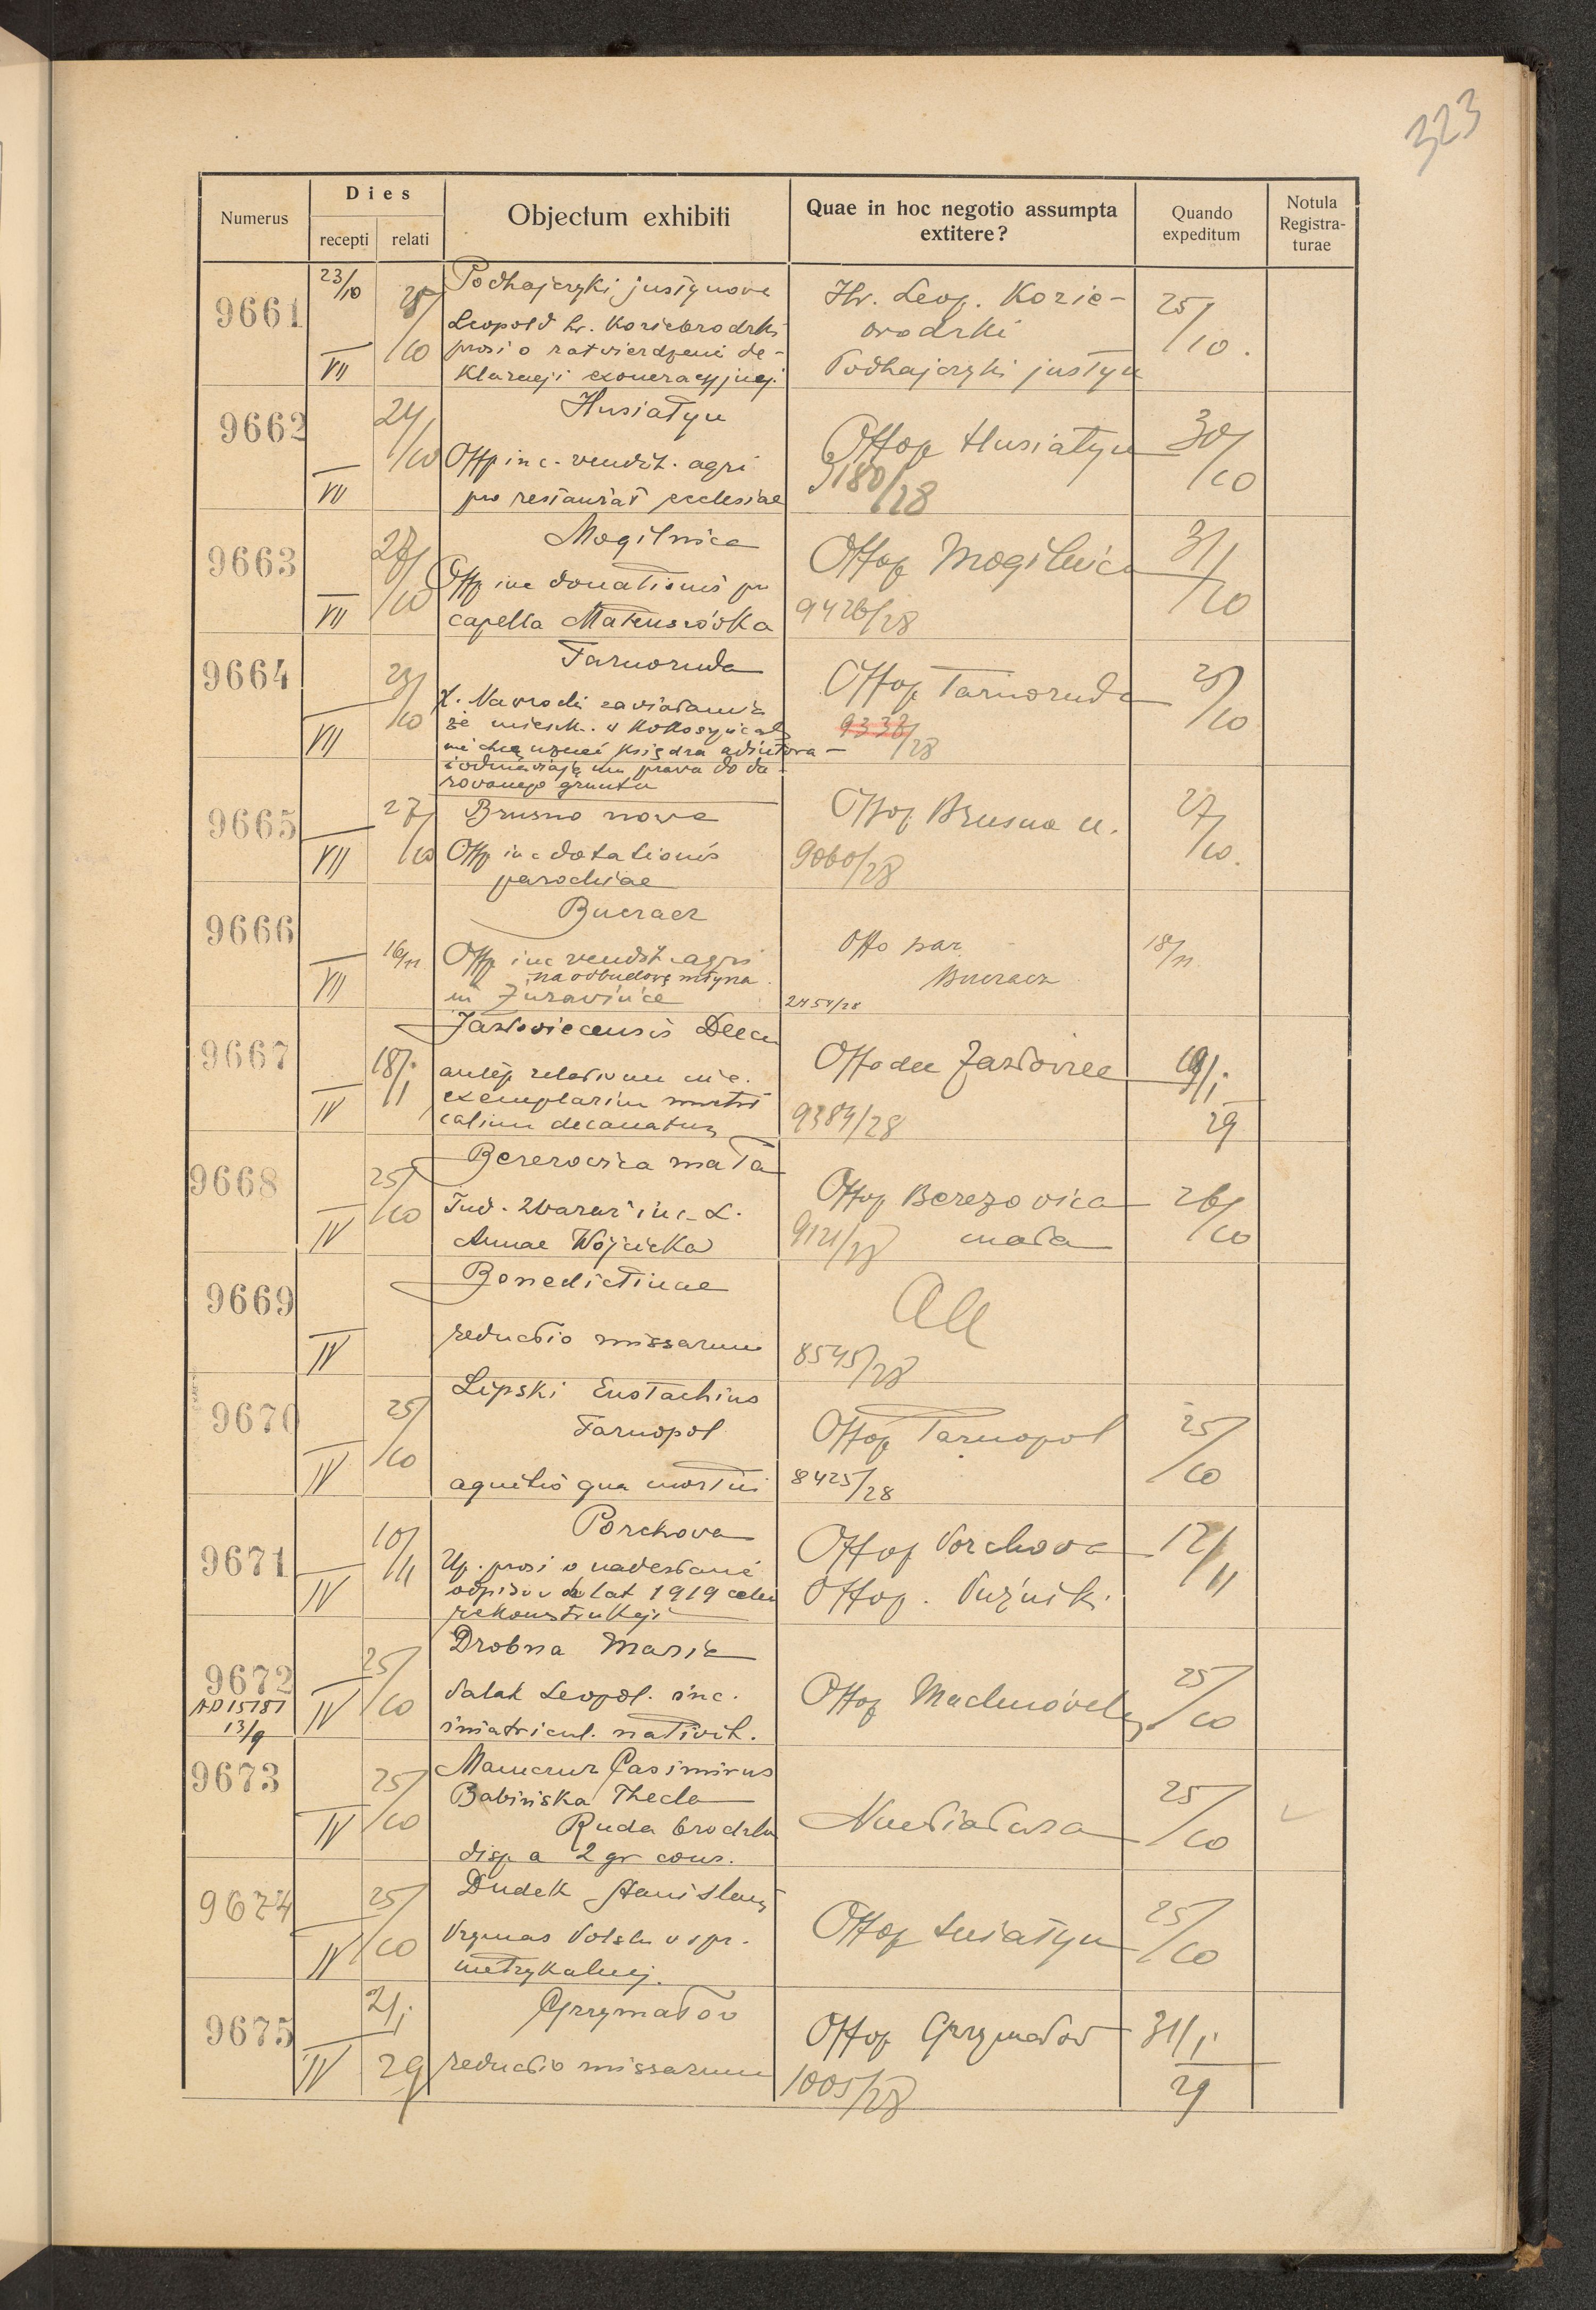 323
Numerus
Dies
recepti relati
Objectum exhibiti
Quae in hoc negotio assumpta
extitere?
Quando
expeditum
Notula
Registra-
turae
9661
23/10
VII
25/10
Podhajczyki justynowe
Leopold hr. Koziebrodzki
prosi o zatwierdzenie de-
klaracji exoneracyjnej.
Hr. Leop. Kozie-
brodzki
Podhajczyki justyn
25/10.
9662
VII
24/10
Husiatyn
Offp inc. vendit. agri
pro restaurat ecclesiae
Offop Husiatyn
9180/28
30/10
9663
VII
27/10
Mogilnica
Offp inc donationis pro
capella Mateuszówka
Offop Mogilnica
9426/28
31/10
9664
VII
25/10
Tarnoruda
X. Nawrocki zawiadamia
że mieszk. w Kokoszyńcach
nie chcą uznać księdza
i odmawiają mu prawa do da-
rowanego gruntu
Offop Tarnoruda
9338/28
25/10
9665
VII
27/10
Brusno nowe
Offp inc dotationis
parochiae
Offop Brusno n.
9060/28
27/10.
9666
VII
16/11
Buczacz
Offp inc vendit. agri
na odbudowę młyna
in Żurawińce
Offo par
Buczacz
2454/28
18/11
9667
IV
18/11
Jazłoviecensis Decan
exemplarium metri
calium decanatus
Offo dec Jazłowiec
9384/28
19/1.
29
9668
IV
25/10
Berezowica mała
Jud. Zbaraż inc. L.
Annae Wójcicka
Offop Berezowica
mała
9121/28
26/10
9669
IV
Benedictinae
reductio missarum
8545/28
9670
IV
25/10
Lipski Eustachius
Tarnopol
agnitio qua mortui
Offop Tarnopol
8425/28
25/10
9671
IV
10/11
Porchowa
Up. prosi o nadesłanie
odpisów z lat 1919 celem
rekonstrukcji
Offop Porchowa
Offop. Puźniki
12/11
9672
AD 15181
13/9
IV
25/10
Drobna Maria
Palat Leopol. inc.
imatricul. nativit.
Offop Machnówek
25/10
9673
IV
25/10
Mamczur Casimirus
Babińska Thecla
Ruda brodzka
disp a 2 gr cons.
25/10
9674
IV
25/10
Dudek Stanislaus
Prymas Polski w spr.
metrykalnej.
Offop Śniatyn
25/10
9675
IV
21/1.
29
Grzymałów
reductio missarum
Offop Grzymałów
1005/28
31/1.
29